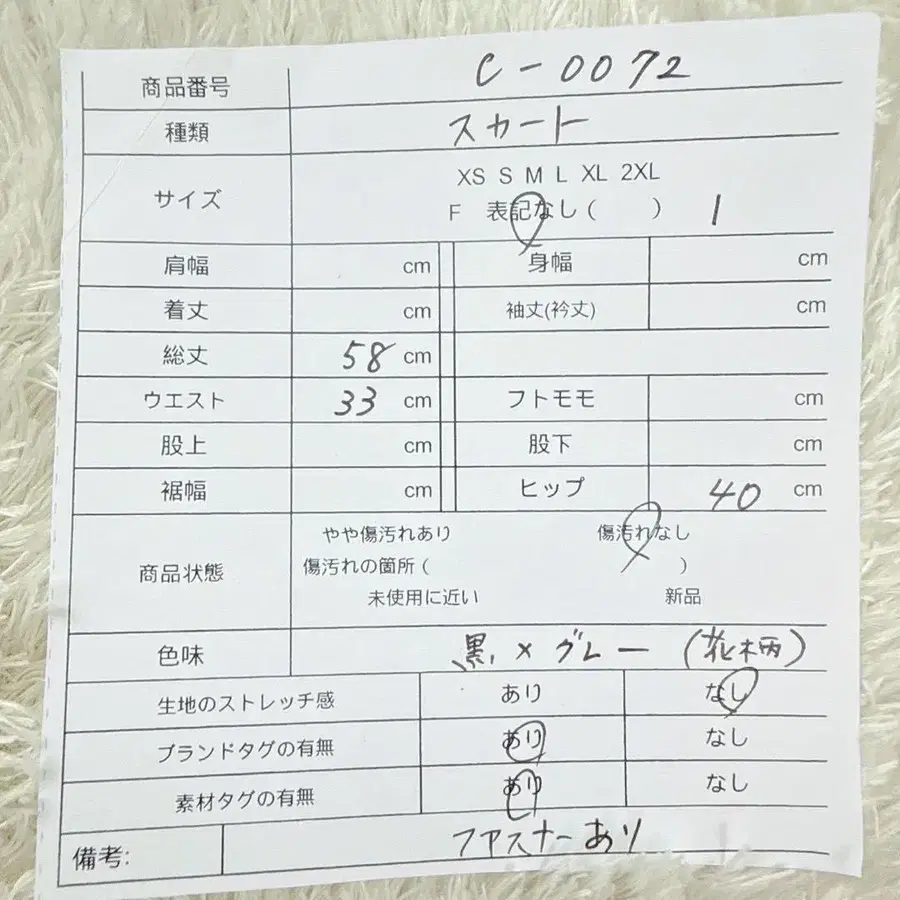 商品番号 C-0072
種類 スカート
サイズ XS S M L XL 2XL
F 表記なし( ) 1
肩幅 cm 身幅 cm
着丈 cm 袖丈(衿丈) cm
総丈 58 cm
ウエスト 33 cm フトモモ cm
股上 cm 股下 cm
裾幅 cm ヒップ 40 cm
やや傷汚れあり 傷汚れなし
商品状態 傷汚れの箇所( )
未使用に近い 新品
色味 黒×グレー(花柄)
生地のストレッチ感 あり なし
ブランドタグの有無 あり なし
素材タグの有無 あり なし
備考: ファスナーあり